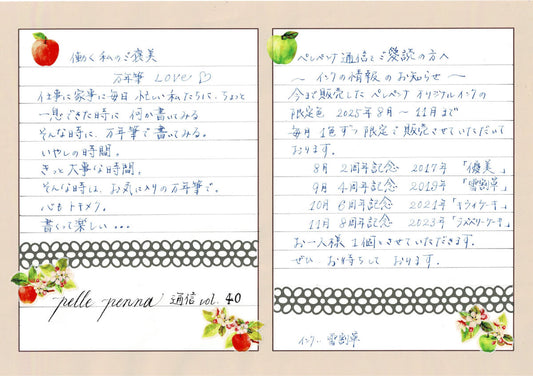 働く私のご褒美
万年筆 Love♡
仕事に家事に毎日忙しい私たちに、ちょっと
一息できた時に 何か書いてみる
そんな時に、万年筆で書いてみる。
いやしの時間。
きっと大事な時間。
そんな時は、お気に入りの万年筆で。
心もトキメク。
書くって楽しい...
pelle penna 通信 vol. 40
ペレペンナ通信をご愛読の方へ
～インクの情報のお知らせ～
今まで販売したペレペンナオリジナルインクの
限定色 2025年8月～11月まで
毎月1色ずつ限定で販売させていただいて
おります。
8月 2周年記念 2017年「優美」
9月 4周年記念 2019年「雪割草」
10月 6周年記念 2021年「キウイケーキ」
11月 8周年記念 2023年「ラズベリーケーキ」
お一人様1個いさせていただきます。
ぜひ お待ちしております。
インク:雪割草